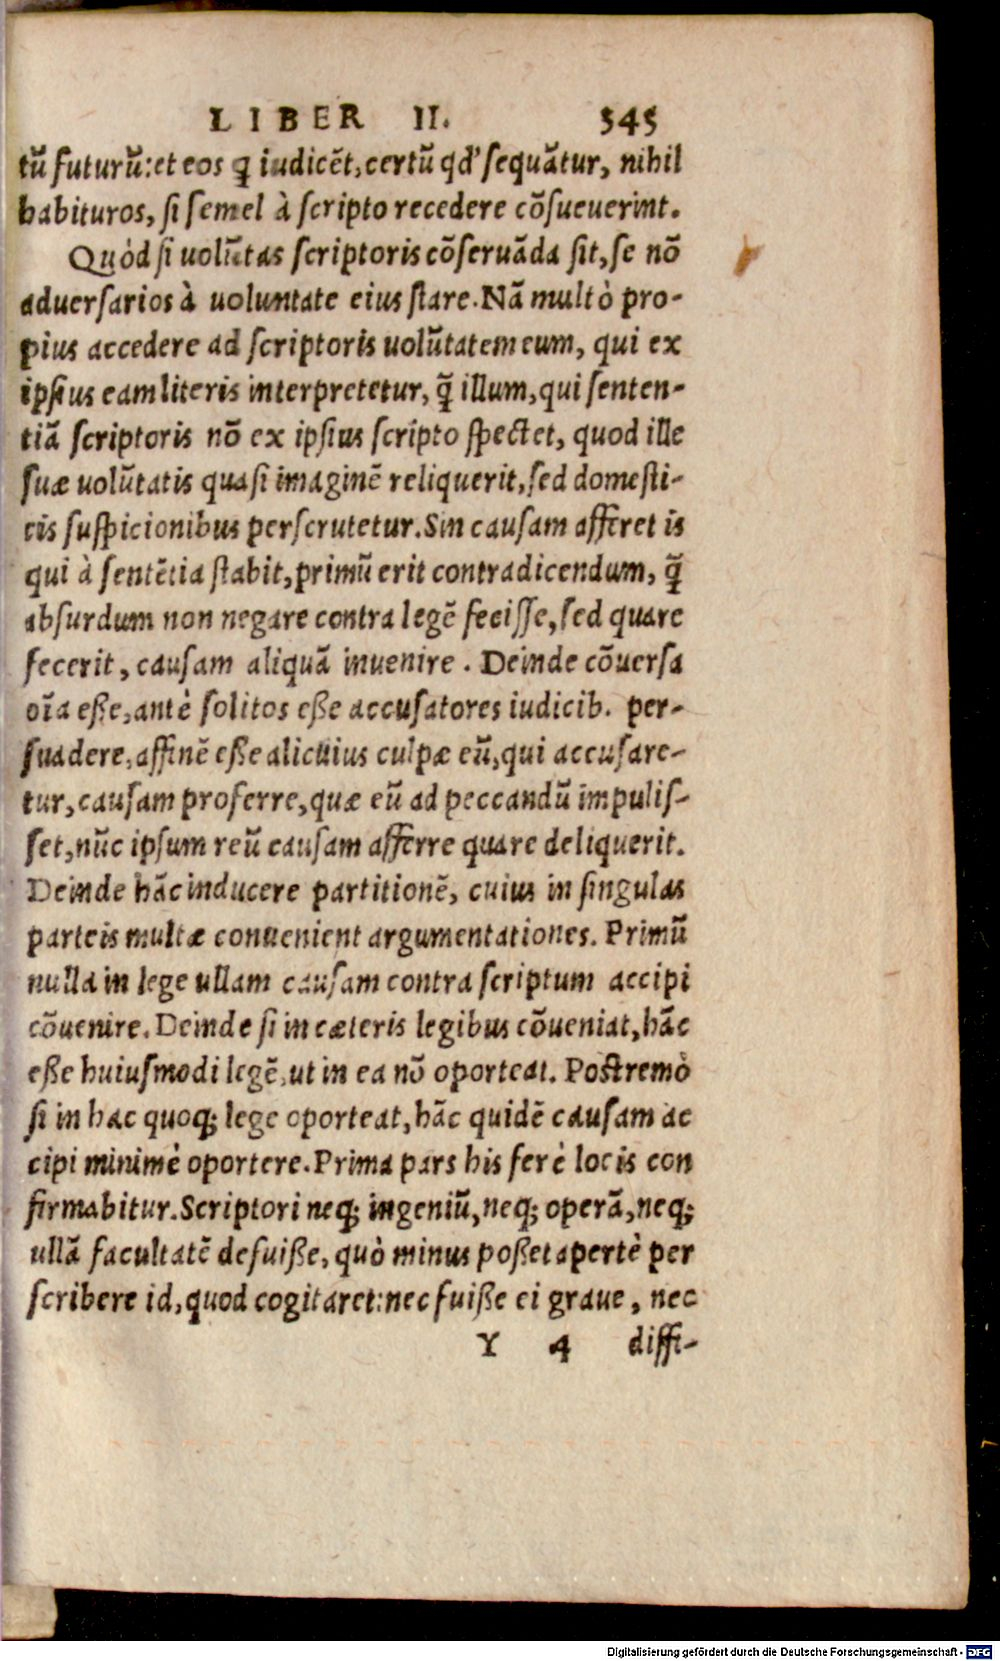 LIBER II. 345
tũ futurũ: et eos q̃ iudicẽt, certũ qd' sequãtur, nihil
habituros, si semel à scripto recedere cõsueuerint.
Quòd si uolũtas scriptoris cõseruãda sit, se nõ
aduersarios à uoluntate eius stare. Nã multò pro-
pius accedere ad scriptoris uolũtatem eum, qui ex
ipsius eam literis interpretetur, q̃ illum, qui senten-
tiã scriptoris nõ ex ipsius scripto spectet, quod ille
suæ uolũtatis quasi imaginẽ reliquerit, sed domesti-
cis suspicionibus perscrutetur. Sin causam afferet is
qui à sentẽtia stabit, primũ erit contradicendum, q̃
absurdum non negare contra legẽ fecisse, sed quare
fecerit, causam aliquã inuenire. Deinde cõuersa
oĩa eße, antè solitos eße accusatores iudicib. per-
suadere, affinẽ eße alicuius culpæ eũ, qui accusare-
tur, causam proferre, quæ eũ ad peccandũ impulis-
set, nũc ipsum reũ causam afferre quare deliquerit.
Deinde hãc inducere partitionẽ, cuius in singulas
parteis multæ conuenient argumentationes. Primũ
nulla in lege ullam causam contra scriptum accipi
cõuenire. Deinde si in cæteris legibus cõueniat, hãc
eße huiusmodi legẽ, ut in ea nõ oporteat. Postremò
si in hac quoq; lege oporteat, hãc quidẽ causam ac
cipi minimè oportere. Prima pars his ferè locis con
firmabitur. Scriptori neq; ingeniũ, neq; operã, neq;
ullã facultatẽ defuiße, quò minus poßet apertè per
scribere id, quod cogitaret: nec fuiße ei graue, nec
Y 4 diffi-
Digitalisierung gefördert durch die Deutsche Forschungsgemeinschaft - DFG